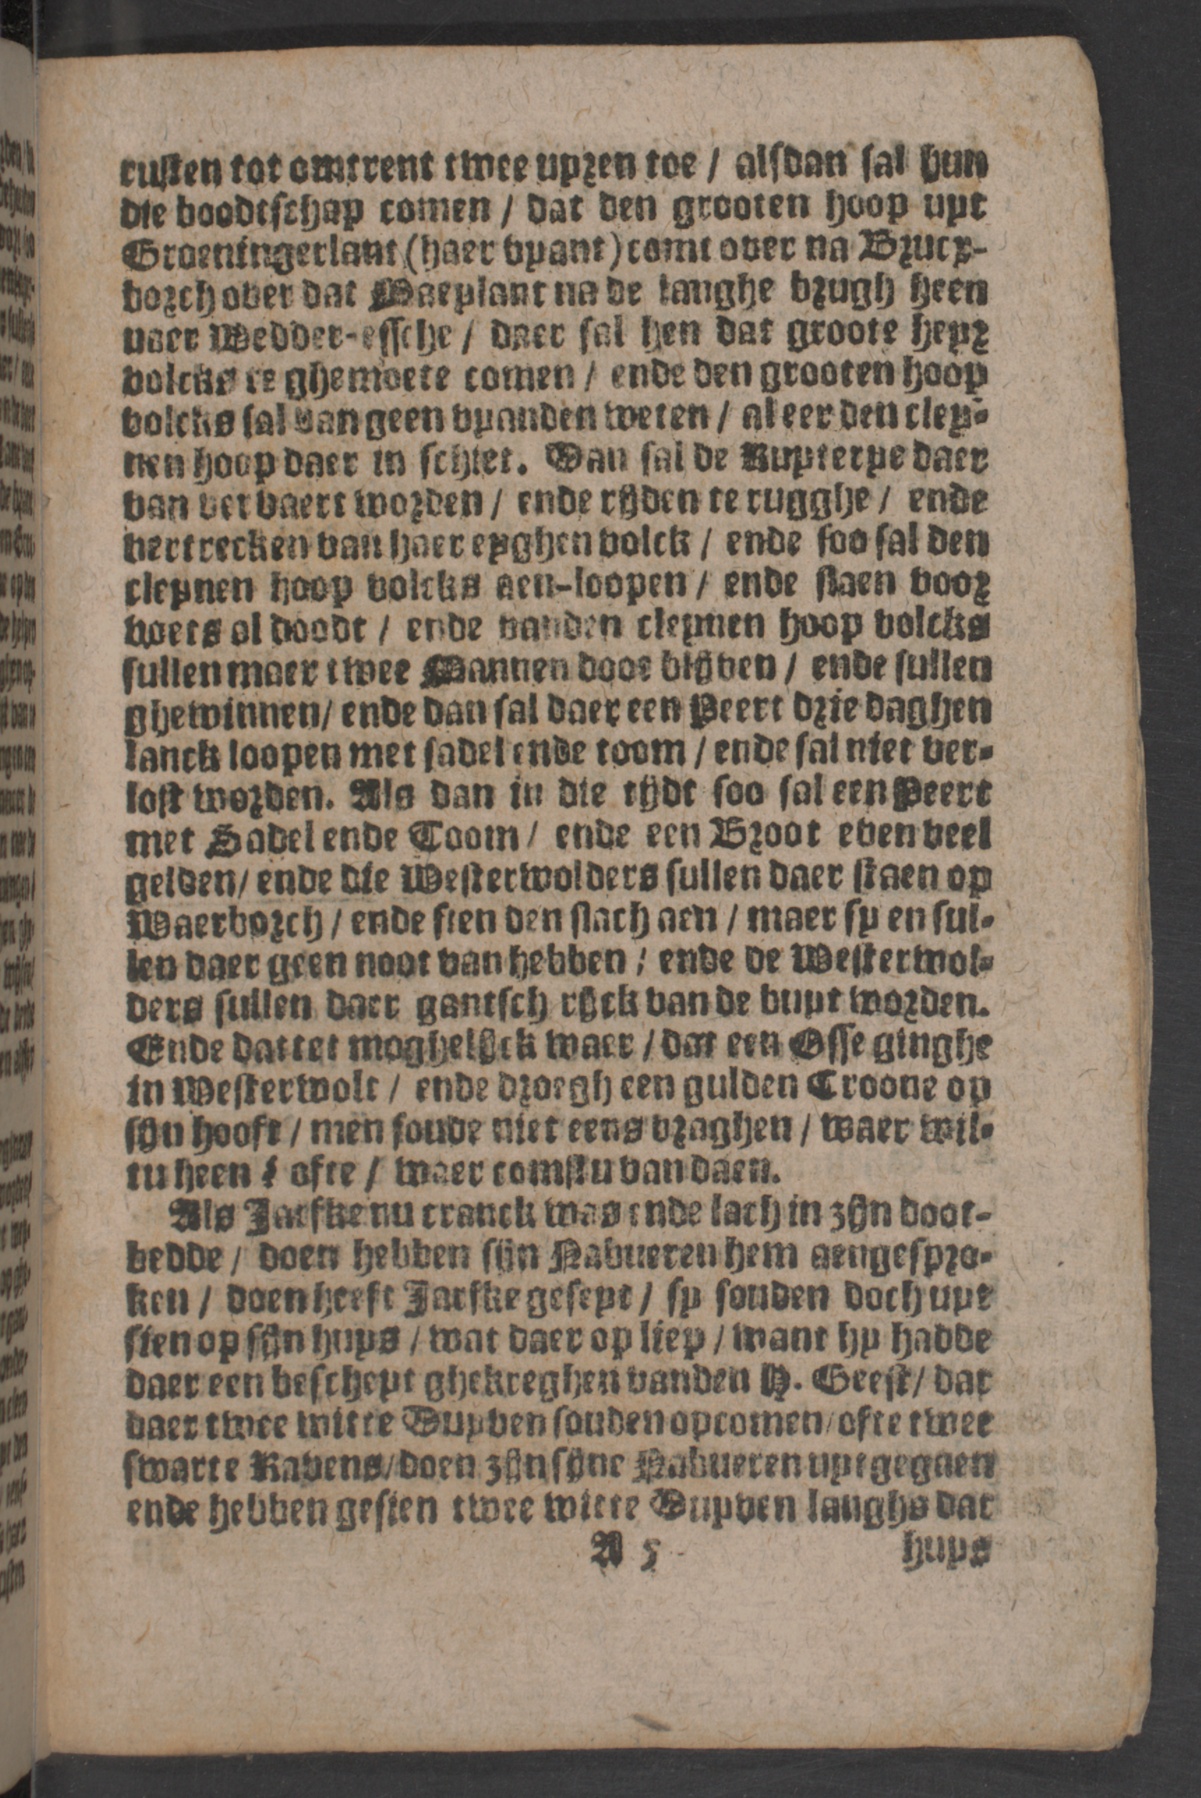 rusten tot omtrent twee uyren toe / alsdan sal hun
die boodtschap comen / dat den grooten hoop uyt
Groeningerlant (haer vyant) comt over na Brucx-
borch over dat Maeylant na de langhe brugh heen
naer Wedder-essche / daer sal hen dat groote heyr
volcks te ghemoete comen / ende den grooten hoop
volcks sal van geen vyanden weten / al eer den cley-
nen hoop daer in schiet. Dan sal de Ruyterye daer
van vervaert worden / ende rijden te rugghe / ende
vertrecken van haer eyghen volck / ende soo sal den
cleynen hoop volcks aen-loopen / ende slaen voor
voets al doodt / ende vanden cleynen hoop volcks
sullen maer twee Mannen doot blijven / ende sullen
ghewinnen / ende dan sal daer een Peert drie daghen
lanck loopen met sadel ende toom / ende sal niet ver-
lost worden. Als dan in die tijdt soo sal een Peert
met Sadel ende Toom / ende een Broot even veel
gelden / ende die Westerwolders sullen daer staen op
Waerborch / ende sien den slach aen / maer sy en sul-
len daer geen noot van hebben / ende de Westerwol-
ders sullen daer gantsch rijck van de buyt worden.
Ende dattet moghelijck waer / dat een Osse ginghe
in Westerwolt / ende droegh een gulden Croone op
sijn hooft / men soude niet eens vraghen / waer wil-
tu heen ? ofte / waer comstu van daen.
Als Jaefke nu cranck was ende lach in zijn doot-
bedde / doen hebben sijn Nabueren hem aengespro-
ken / doen heeft Jaefke geseyt / sy souden doch uyt
sien op sijn huys / wat daer op liep / want hy hadde
daer een bescheyt ghekreghen vanden H. Geest / dat
daer twee witte Duyven souden opcomen / ofte twee
swarte Ravens / doen zijn sijne Nabueren uytgegaen
ende hebben gesien twee witte Duyven langhs dat
A 5 huys